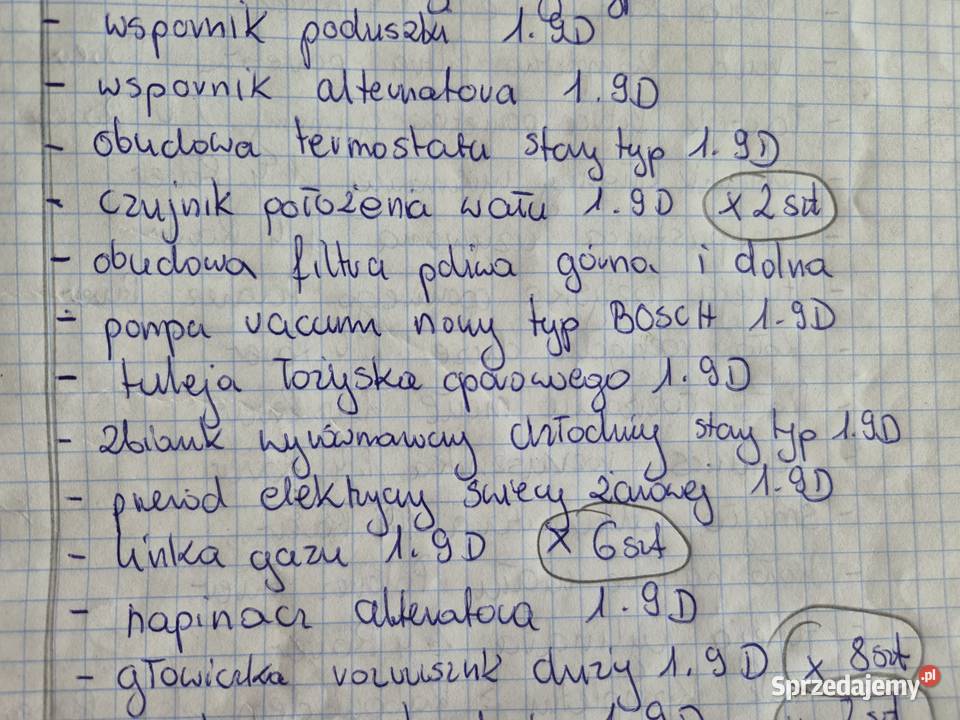 - wspornik poduszki 1.9D
- wspornik alternatora 1.9D
- obudowa termostatu stary typ 1.9D
- czujnik położenia wału 1.9D x 2 szt
- obudowa filtra paliwa górna i dolna
- pompa vacum nowy typ BOSCH 1.9D
- tuleja łożyska oporowego 1.9D
- zbiornik wyrównawczy chłodnicy stary typ 1.9D
- przewód elektryczny świecy żarowej 1.9D
- linka gazu 1.9D x 6 szt
- napinacz alternatora 1.9D
- głowiczka rozrusznik duży 1.9D x 8 szt
1.9D
Sprzedajemy.pl